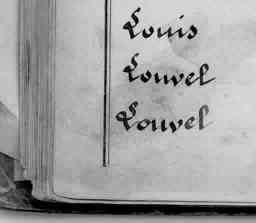 Louis
Louvel
Louvel